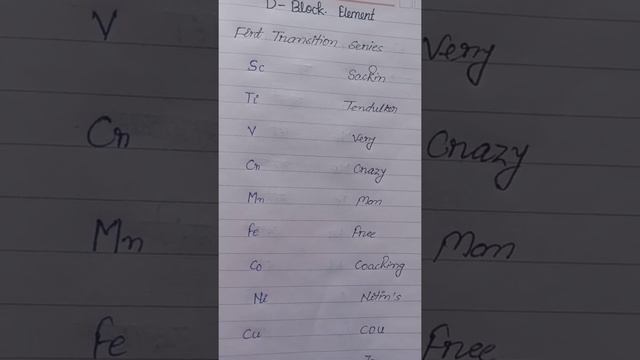 D-Block Element
First Transition Series
Sc Sachin
Ti Tendulkar
V Very
Cr Crazy
Mn Man
Fe Free
Co Coaching
Ni Nitin's
Cu Cou
V Very
Cr Crazy
Mn Man
Fe Free